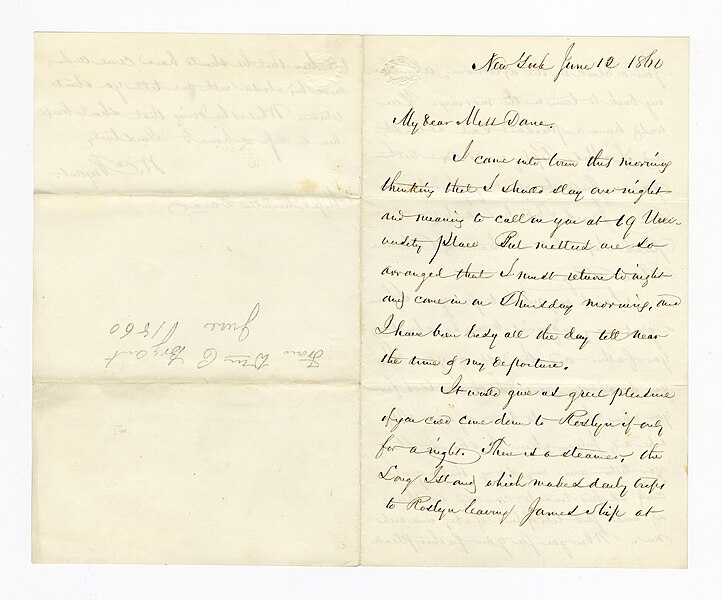 New York June 12 1860
My dear Miss Dana.
I came into town this morning
thinking that I should stay over night
and meaning to call on you at 19 Uni-
versity place. But matters are so
arranged that I must return to night
and come in on Thursday morning, and
I have been busy all the day till near
the time of my departure.
It would give us great pleasure
if you could come down to Roslyn if only
for a night. There is a steamer, the
Long Island which makes daily trips
to Roslyn leaving James Slip at
From Wm C Bryant
June
1860